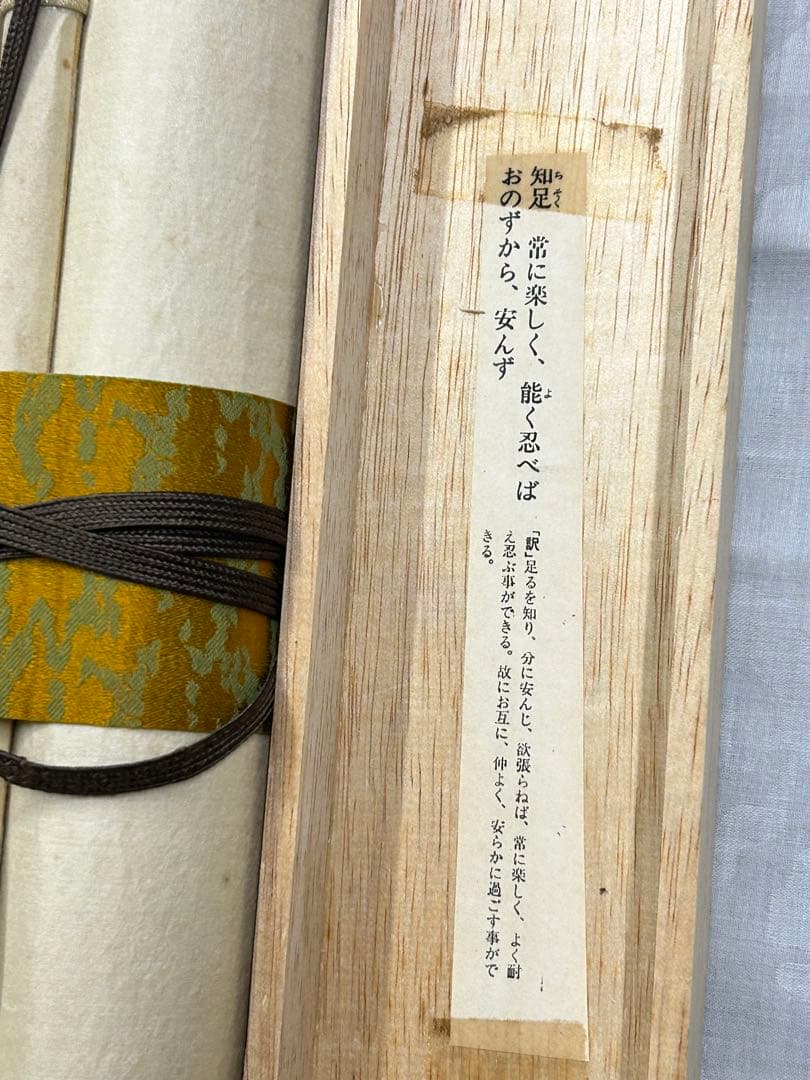 知足　常に楽しく、能く忍べば
おのずから、安んず
「訳」足るを知り、分に安んじ、欲張らねば、常に楽しく、よく耐
え忍ぶ事ができる。故にお互に、仲よく、安らかに過ごす事がで
きる。